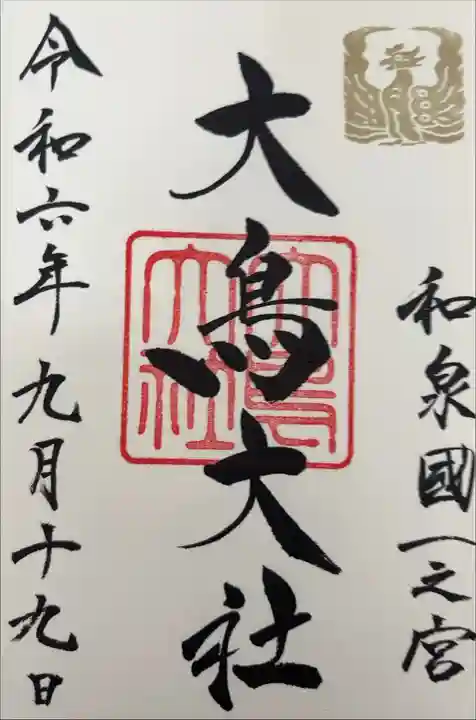 和泉國一之宮
大鳥大社
大鳥大社
令和六年九月十九日